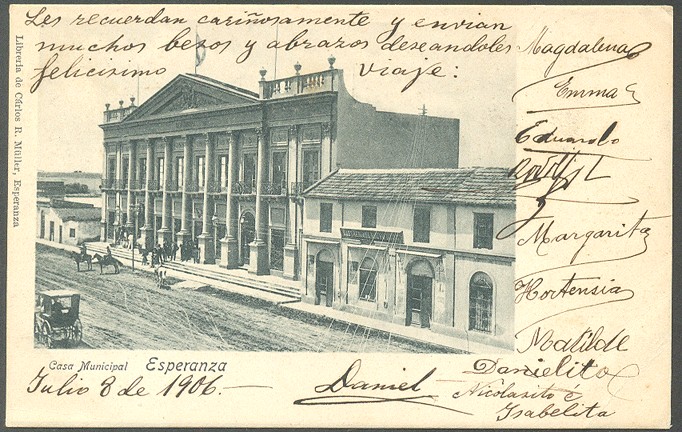 Les recuerdan cariñosamente y envian
muchos besos y abrazos deseandoles
felicisimo viaje:
Magdalena
Emma
Eduardo
Margarita
Hortensia
Matilde
Danielito
Nicolasito é
Isabelita
Daniel
Librería de Cárlos R. Müller, Esperanza
Casa Municipal Esperanza
Julio 8 de 1906.